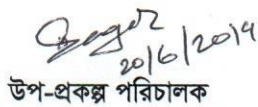 20/6/2019
উপ-প্রকল্প পরিচালক